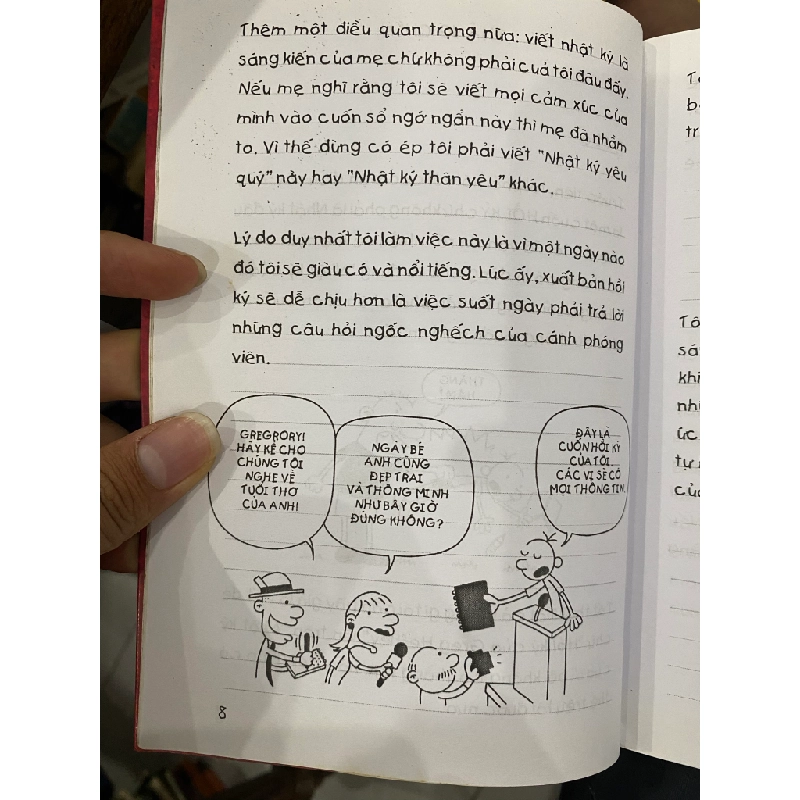 Thêm một điều quan trọng nữa: viết nhật ký là
sáng kiến của mẹ chứ không phải của tôi đâu đấy.
Nếu mẹ nghĩ rằng tôi sẽ viết mọi cảm xúc của
mình vào cuốn sổ ngớ ngẩn này thì mẹ đã nhầm
to. Vì thế đừng có ép tôi phải viết "Nhật ký yêu
quý" này hay "Nhật ký thân yêu" khác.
Lý do duy nhất tôi làm việc này là vì một ngày nào
đó tôi sẽ giàu có và nổi tiếng. Lúc ấy, xuất bản hồi
ký sẽ dễ chịu hơn là việc suốt ngày phải trả lời
những câu hỏi ngốc nghếch của cánh phóng
viên.
GREGRORY!
HÃY KỂ CHO
CHÚNG TÔI
NGHE VỀ
TUỔI THƠ
CỦA ANH!
NGÀY BÉ
ANH CŨNG
ĐẸP TRAI
VÀ THÔNG MINH
NHƯ BÂY GIỜ
ĐÚNG KHÔNG?
ĐÂY LÀ
CUỐN HỒI KÝ
CỦA TÔI.
CÁC VỊ SẼ CÓ
MỌI THÔNG TIN.
8